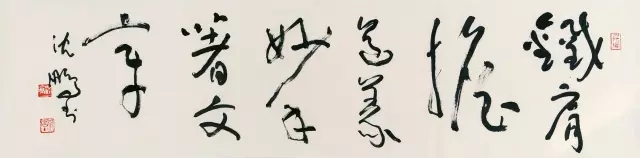 鐵肩
擔
道義
妙手
著文
章
沈鵬書